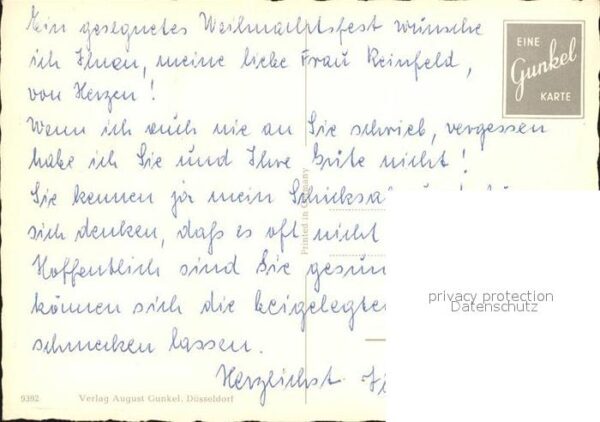 Ein gesegnetes Weihnachtsfest wünsche
ich Ihnen, meine liebe Frau Reinfeld,
von Herzen!
Wenn ich auch nie an Sie schrieb, vergessen
habe ich Sie und Ihre Güte nicht!
Sie kennen ja mein
sich denken, daß es oft nicht
Hoffentlich sind Sie
können sich die beigelegten
schmecken lassen.
Herzlichst
EINE
Gunkel
KARTE
Printed in Germany
privacy protection
Datenschutz
9392 Verlag August Gunkel, Düsseldorf